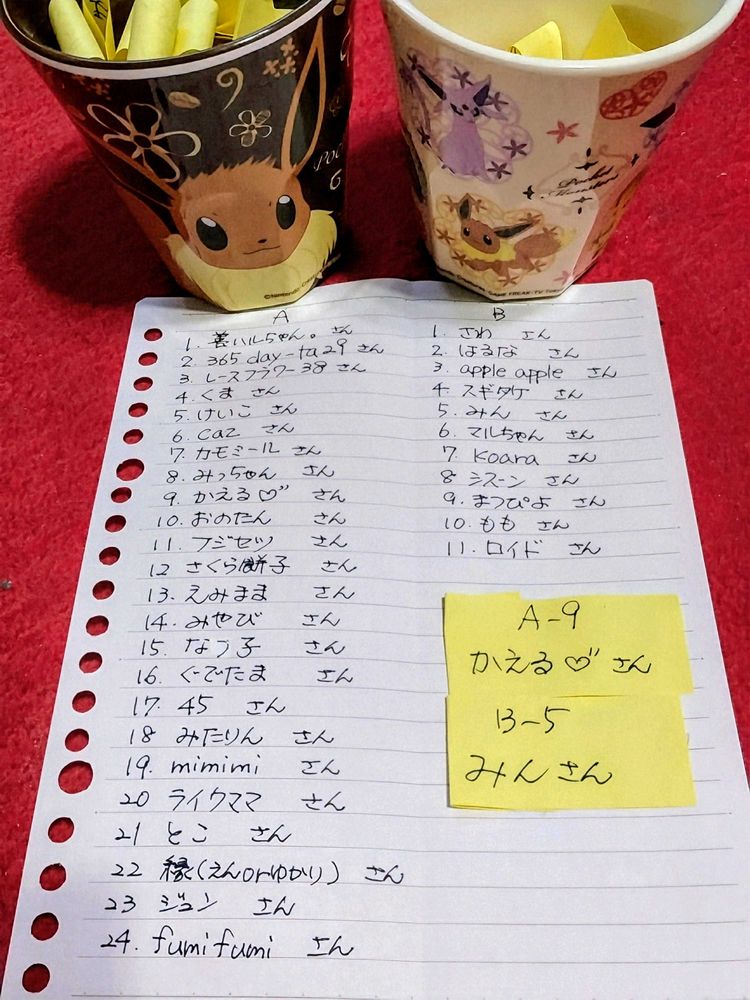 Pocket Monsters
GAME FREAK・TV
A
1. 善ハルちゃん。さん
2. 365 day-ta29 さん
3. レースフラワー38 さん
4. くま さん
5. けいこ さん
6. caz さん
7. カモミール さん
8. みっちゃん さん
9. かえる♡ さん
10. おのたん さん
11. フジセツ さん
12 さくら餅子 さん
13. えみまま さん
14. みやび さん
15. なつ子 さん
16. ぐでたま さん
17. 45 さん
18 みたりん さん
19. mimimi さん
20 ライクママ さん
21 とこ さん
22 縁(えんorゆかり) さん
23 ジュン さん
24. fumifumi さん
B
1. さわ さん
2. はるな さん
3. apple apple さん
4. スギタケ さん
5. みん さん
6. マルちゃん さん
7. koara さん
8 シスーン さん
9. まつぴよ さん
10. もも さん
11. ロイド さん
A-9
かえる♡さん
B-5
みんさん